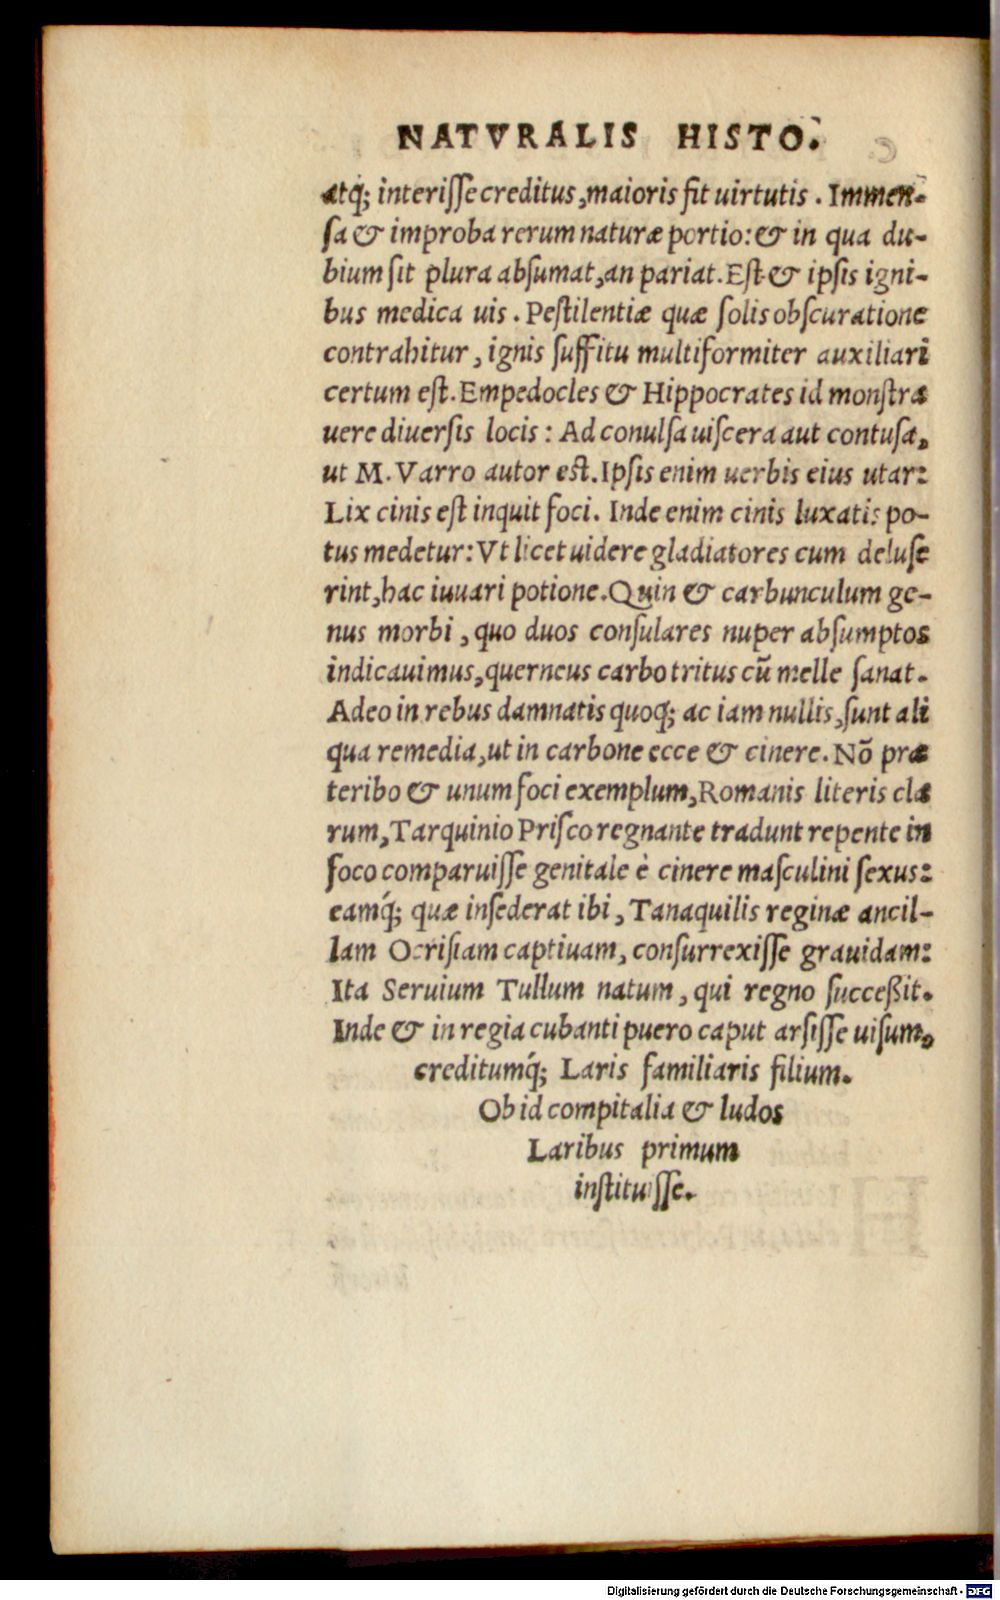 NATVRALIS HISTO.
atq; interiſſe creditus, maioris fit uirtutis. Immen-
ſa & improba rerum naturæ portio: & in qua du-
bium ſit plura abſumat, an pariat. Eſt & ipſis igni-
bus medica uis. Peſtilentiæ quæ ſolis obſcuratione
contrahitur, ignis ſuffitu multiformiter auxiliari
certum eſt. Empedocles & Hippocrates id monſtra
uere diuerſis locis: Ad conulſa uiſcera aut contuſa,
ut M. Varro autor eſt. Ipſis enim uerbis eius utar:
Lix cinis eſt inquit foci. Inde enim cinis luxatis po-
tus medetur: Vt licet uidere gladiatores cum deluſe
rint, hac iuuari potione. Quin & carbunculum ge-
nus morbi, quo duos conſulares nuper abſumptos
indicauimus, querneus carbo tritus cū melle ſanat.
Adeo in rebus damnatis quoq; ac iam nullis, ſunt ali
qua remedia, ut in carbone ecce & cinere. Nō præ
teribo & unum foci exemplum, Romanis literis cla
rum, Tarquinio Priſco regnante tradunt repente in
foco comparuiſſe genitale è cinere maſculini ſexus:
eamq́; quæ inſederat ibi, Tanaquilis reginæ ancil-
lam Ocriſiam captiuam, conſurrexiſſe grauidam:
Ita Seruium Tullum natum, qui regno ſucceßit.
Inde & in regia cubanti puero caput arſiſſe uiſum,
creditumq́; Laris familiaris filium.
Ob id compitalia & ludos
Laribus primum
inſtituiſſe.
Digitalisierung gefördert durch die Deutsche Forschungsgemeinschaft - DFG